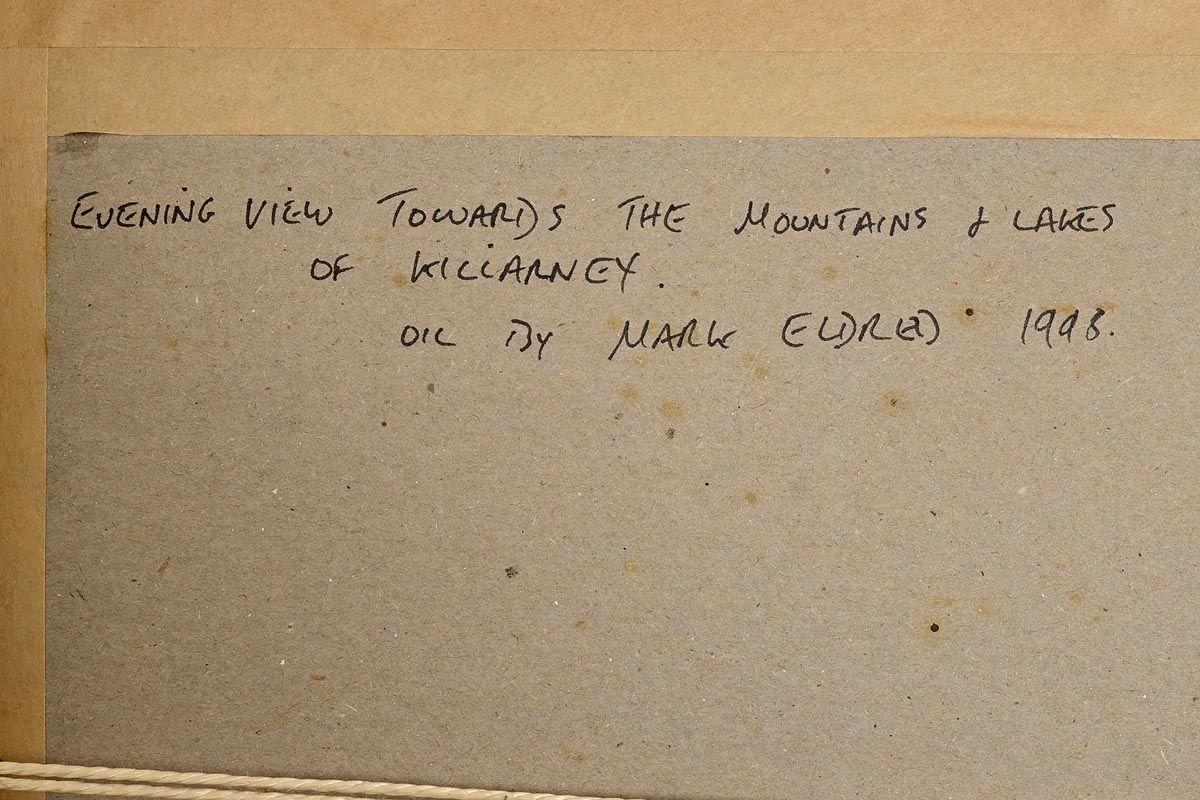 EVENING VIEW TOWARDS THE MOUNTAINS & LAKES
OF KILLARNEY.
OIL BY MARK ELDRED 1998.